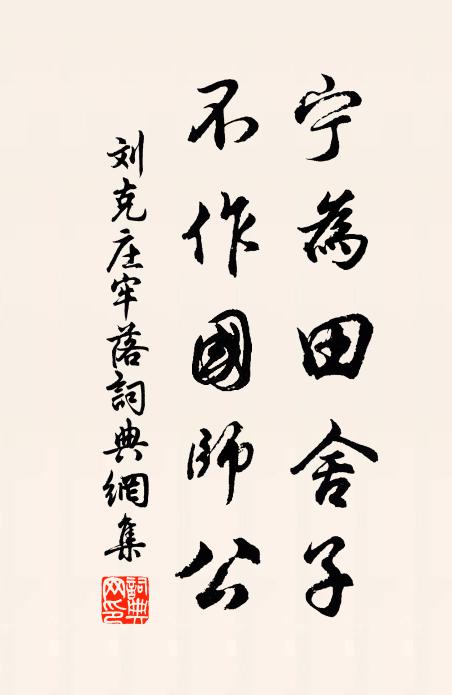 宁為田舍子
不作國師公
刘克庄牢落詞典網集
詞典网印